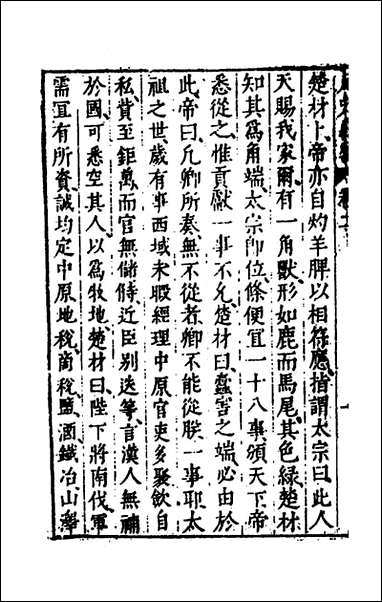 楚材卜帝亦自灼羊脾以相符應指謂太宗曰此人
天賜我家爾有一角獸形如鹿而馬尾其色綠楚材
知其爲角端太宗即位條便宜一十八事頒天下帝
悉從之惟貢獻一事不允楚材曰蠹害之端必由於
此帝曰凡卿所奏無不從者卿不能從朕一事耶太
祖之世歲有事西域未暇經理中原官吏多聚歛自
私貲至鉅萬而官無儲偫近臣别迭等言漢人無補
於國可悉空其人以爲牧地楚材曰陛下將南伐軍
需宜有所資誠均定中原地稅商稅鹽酒鐵冶山澤